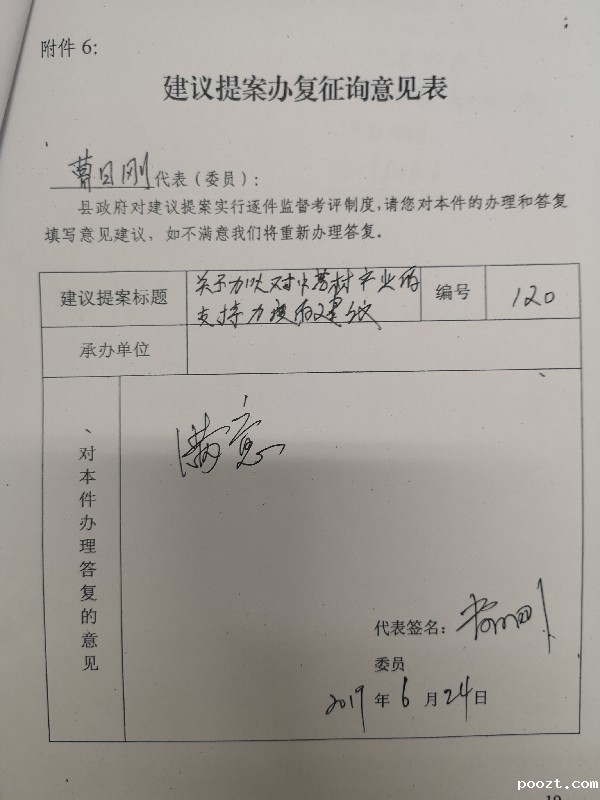 附件 6:
建议提案办复征询意见表
曹日刚代表（委员）：
县政府对建议提案实行逐件监督考评制度,请您对本件的办理和答复
填写意见建议，如不满意我们将重新办理答复。
建议提案标题
关于加大对中药材产业的
支持力度的建议
编号
120
承办单位
对本件办理答复的意见
满意
代表签名：
委员
2019 年 6 月 24 日
poozt.com